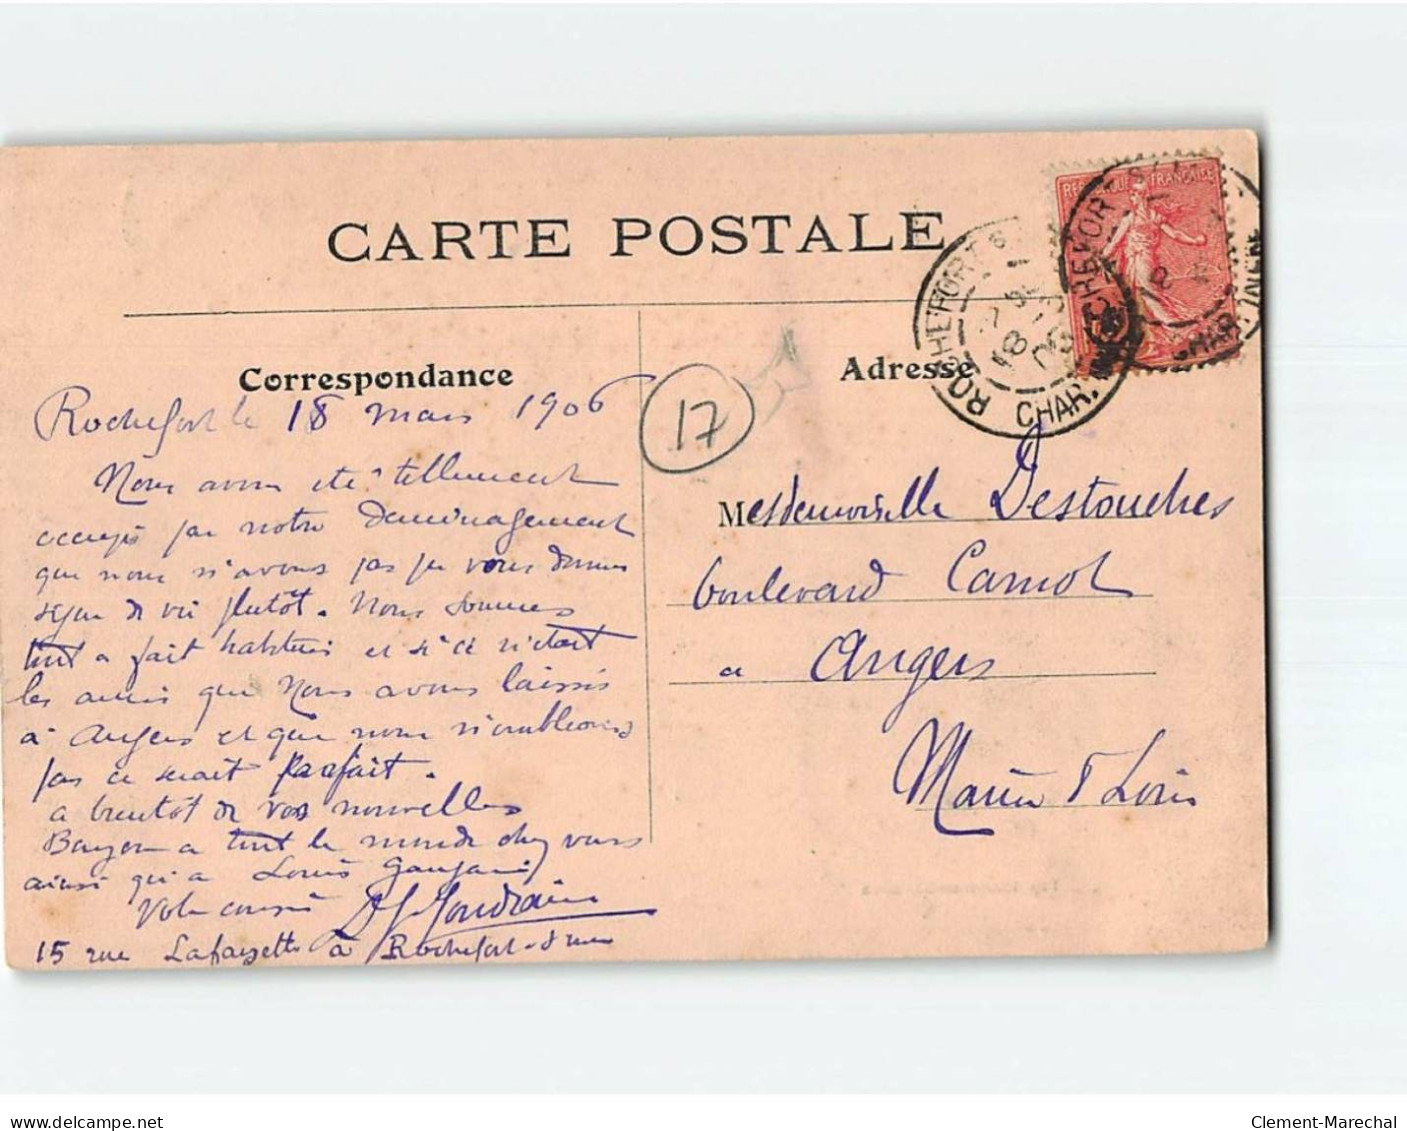 CARTE POSTALE
REPUBLIQUE FRANÇAISE
ROCHEFORT S
18
06
CHAR.
ROCHEFORT S
CHAR. INFRE
Correspondance
Adresse
17
Rochefort le 18 mars 1906
Nous avons été tellement
occupés par notre déménagement
que nous n'avons pas pu vous donner
signe de vie plutôt. Nous sommes
tout a fait habitués et si ce n'etait
les amis que nous avons laissés
à Angers et que nous n'oublions
pas ce serait parfait.
a bientôt de vos nouvelles
Bonjour a tout le monde chez vous
ainsi qu'a Louis
Votre cousin
15 rue Lafayette à Rochefort-s mer
Mesdemoiselle Destouches
boulevard Carnot
a Angers
Maine & Loire
delcampe.net
Clement-Marechal